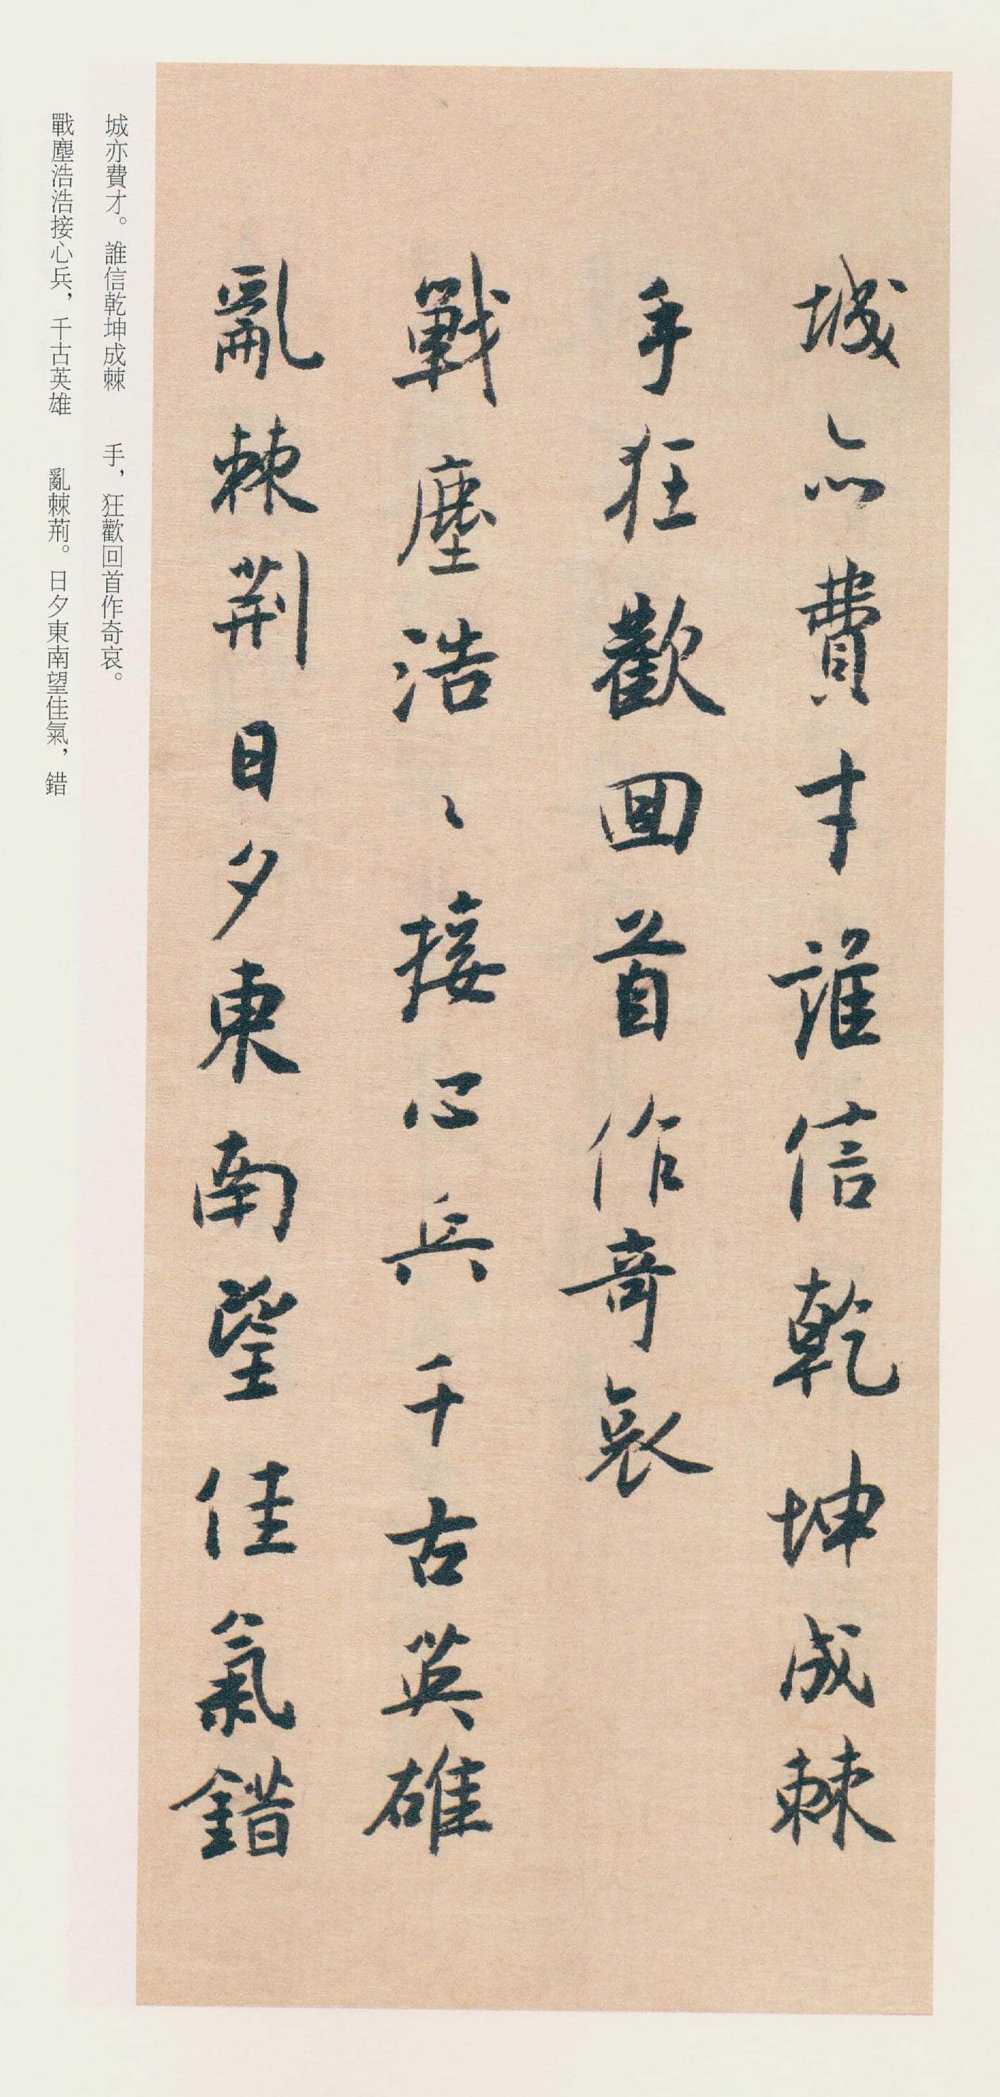 城亦費才誰信乾坤成棘
手狂歡回首作奇哀
戰塵浩〻接心兵千古英雄
亂棘荊日夕東南望佳氣錯
城亦費才。誰信乾坤成棘　手，狂歡回首作奇哀。
戰塵浩浩接心兵，千古英雄　亂棘荊。日夕東南望佳氣，錯